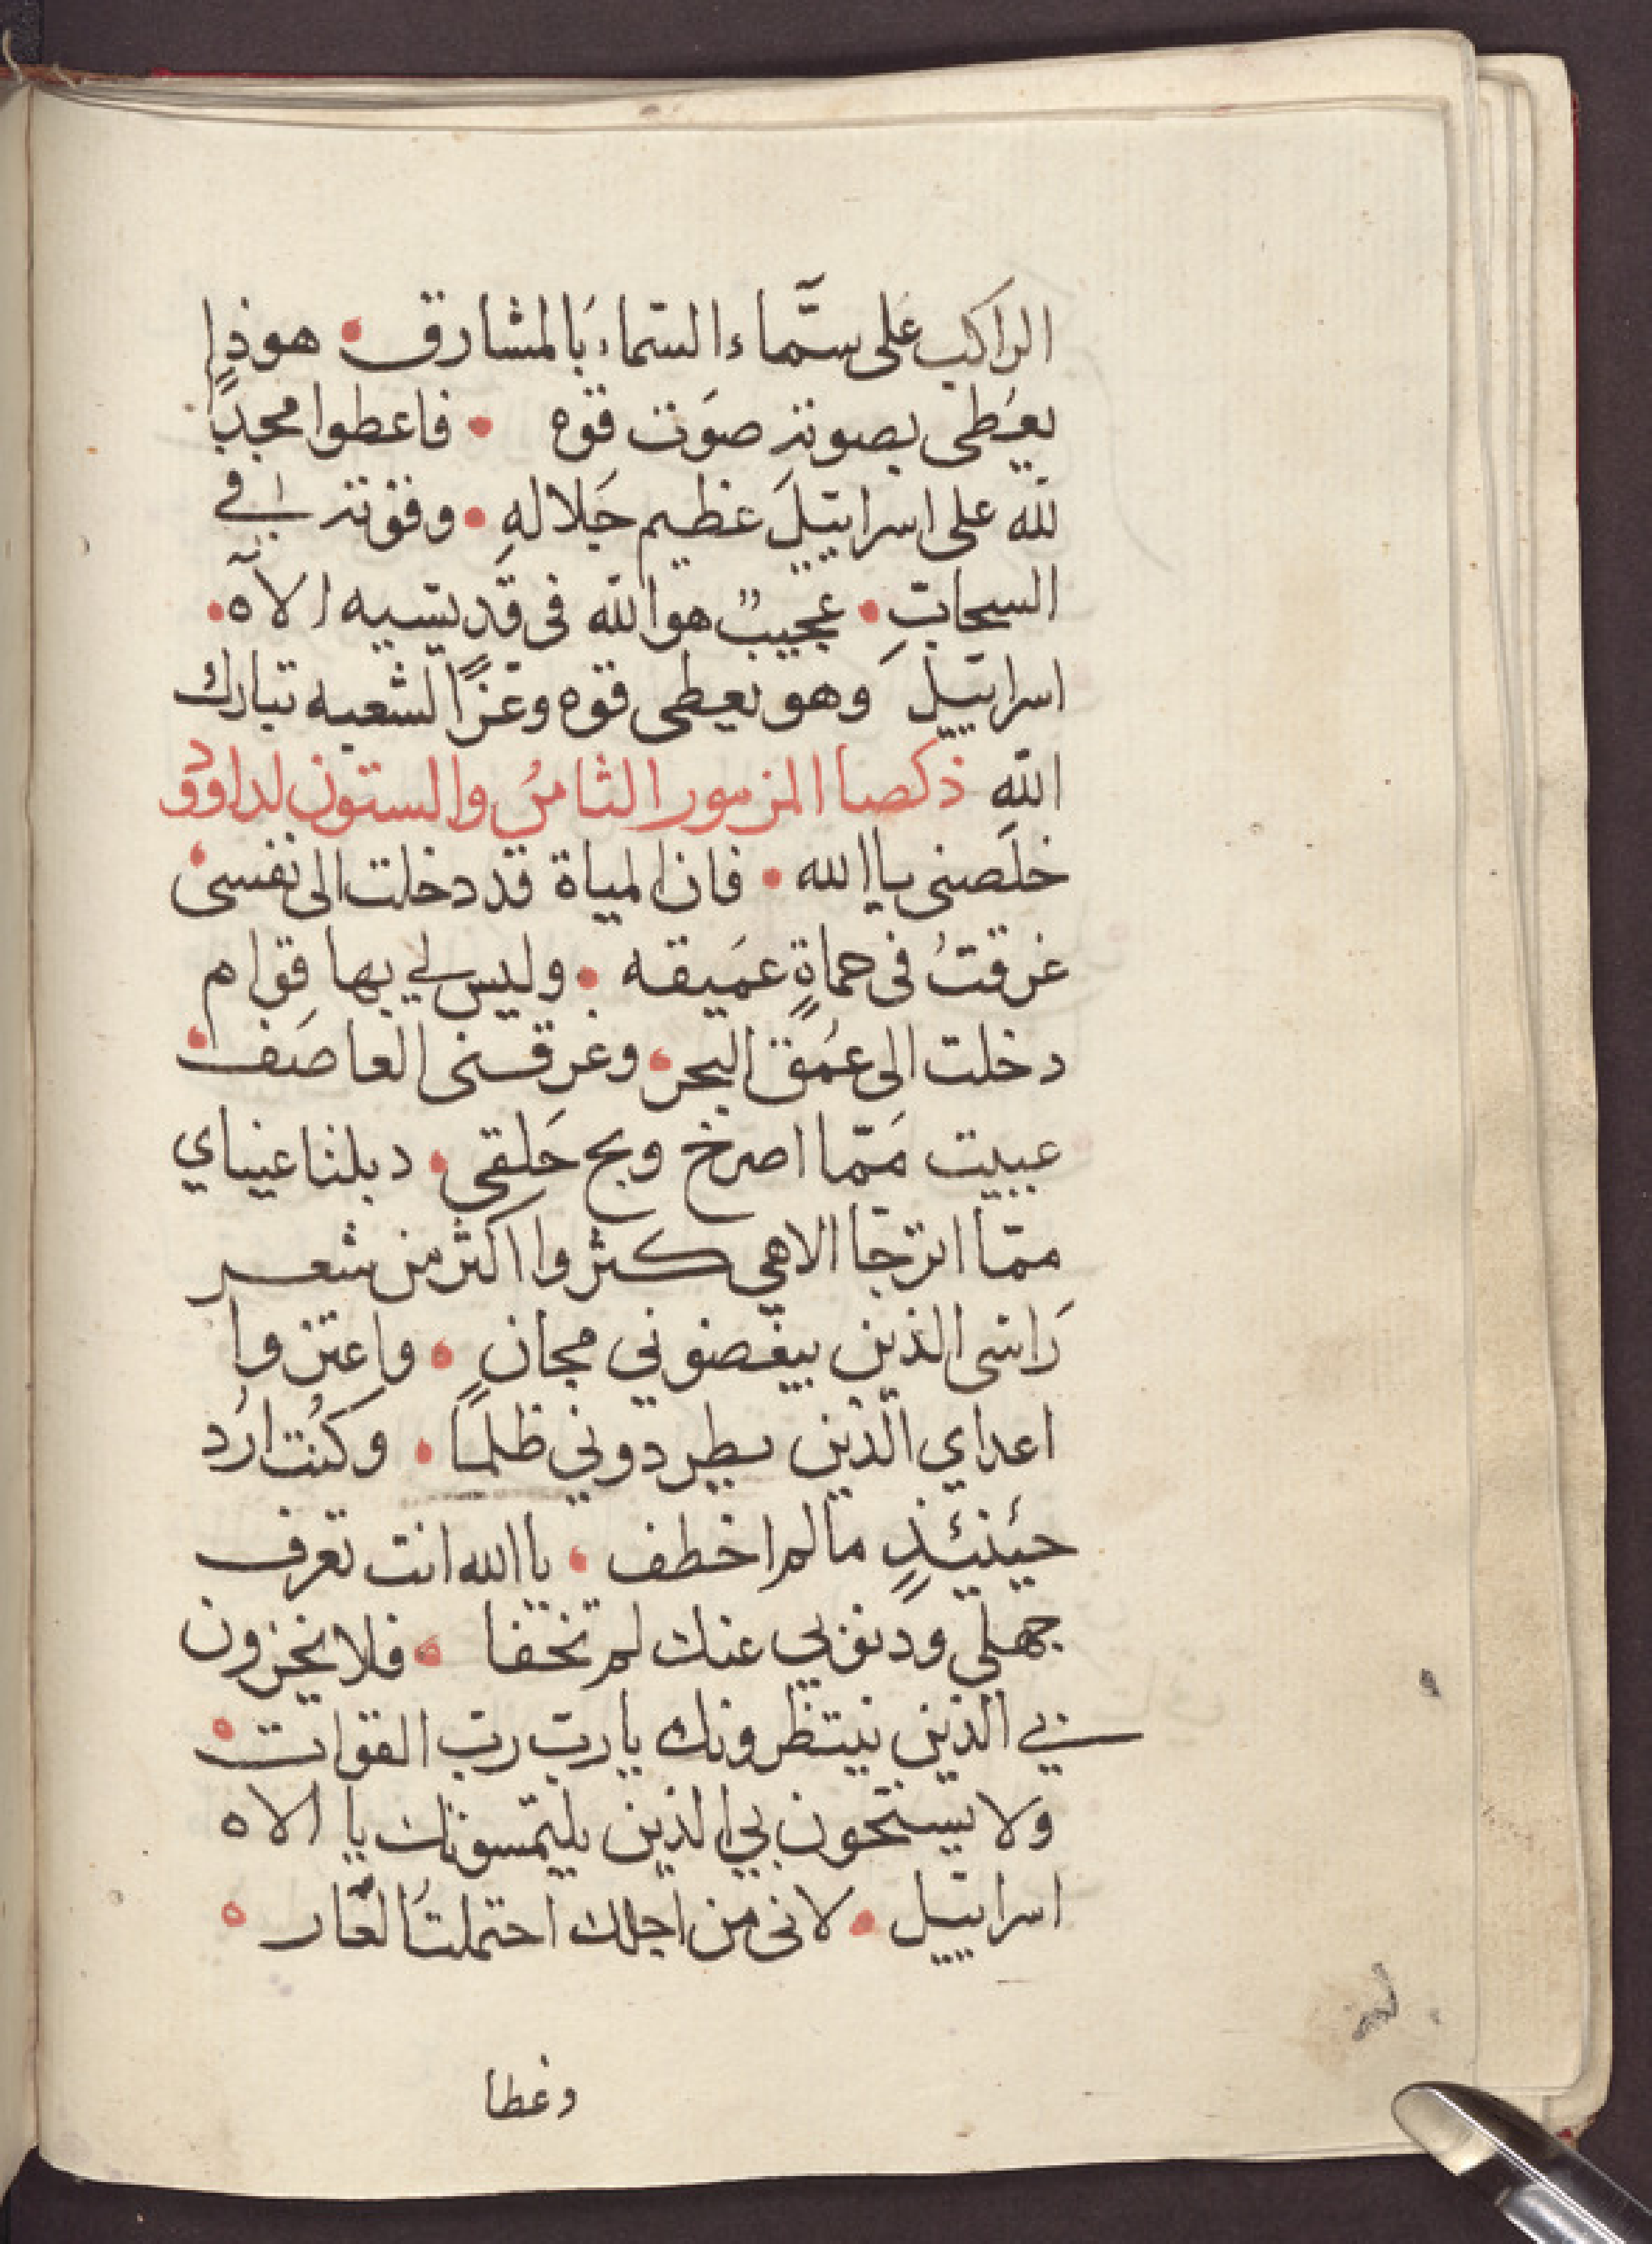 الراكب على سمَّاء السّماء بَالمشارق • هوذا
يعُطى بصوته صوَت قوه • فاعطوا مجدًا
لله على اسراييّلَ عظيم جَلالهِ • وقوته في
السحابِ • عجيبٌ هو الله فى قدّيسيه الاآه •
اسراييّل وَهو يعطى قوه وعّزًا لشعبه تبارك
الله ذكصا المزمور الثامنُ والستون لداوود
خلَصنى يا الله • فان المياة قد دخلت الى نفسى •
غرقتُ فى حماةٍ عمَيقه • وليس لي بها قوام
دخلت الى عمُق البحر • وغرقنى العاصَف •
عييت مَمّا اصرخ وبح حَلقى • دبلنا عيناي
ممّا اترجّا الاهي كثروا اكثر من شعر
رَاسى الذين يبغضوني مجان • واعتزوا
اعداي الّذين يطردوني ظلمًا • وكنُت ارُد
حيئنيئذٍ مالم اخطف • يا الله انت تعرف
جهلي وذنوبي عنك لم تخفا • فلا يخزون
بي الّذين ينتظرونك يا ربّ ربّ القوات •
ولا يستحون بي الذين يلتمّسونك يا الاه
اسراييّل • لانى من اجلك احتملتُ العَّار •
وغطا